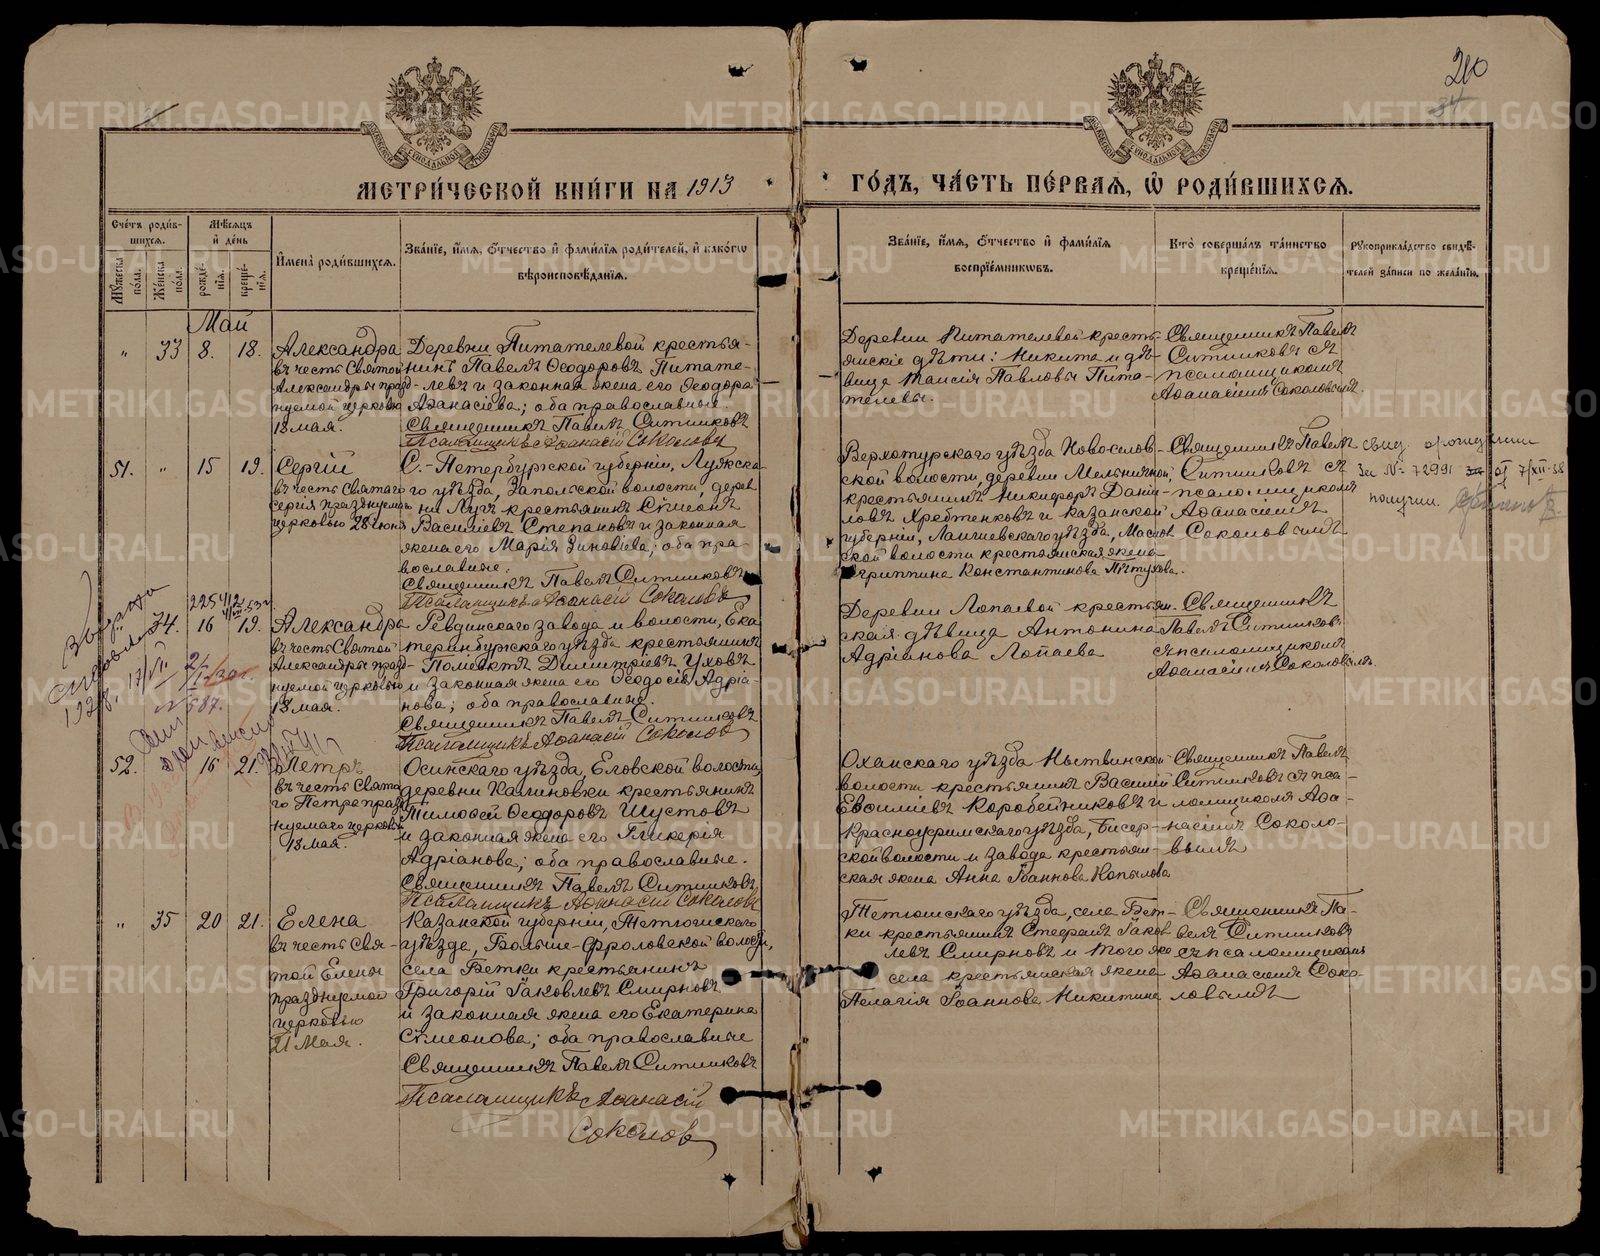 210
34
МЕТРИ́ЧЕСКОЙ КНИ́ГИ НА 1913
ГО́ДЪ, ЧА́СТЬ ПЕ́РВАѦ, Ѡ҆ РОДИ́ВШИХСѦ.
Сче́тъ роди́в-
шихсѧ.
Мꙋ́жеска по́ла.
Же́нска по́ла.
Мѣ́сѧцъ
и҆ де́нь
рожде́-
нїѧ.
креще́-
нїѧ.
И҆мена̀ роди́вшихсѧ.
Зва́нїе, и҆́мѧ, ѻ҆́тчество и҆ фами́лїѧ роди́телей, и҆ како́гѡ
вѣроисповѣ́данїѧ.
Зва́нїе, и҆́мѧ, ѻ҆́тчество и҆ фами́лїѧ
воспрїе́мникѡвъ.
Кто̀ соверша́лъ та́инство
креще́нїѧ.
Рꙋкоприкла́дство свидѣ́-
телей за́писи по жела́нїю.
Май
„ 33 8. 18.
Александра
въ честь Святой
Александры празд-
нуемой церковью
18 мая.
Деревни Питателевой крестья-
нинъ Павелъ Ѳеодоровъ Питате-
левъ и законная жена его Ѳеодора
Аѳанасіева; оба православные.
Священникъ Павелъ Ситниковъ
Псаломщикъ Аѳанасій Соколовъ
Деревни Питателевой кресть-
янскіе дѣти: Никита и дѣ-
вица Таисія Павловы Пита-
телевы.
Священникъ Павелъ
Ситниковъ съ
псаломщикомъ
Аѳанасіемъ Соколовымъ.
51. „ 15 19.
Сергій
въ честь Святаго
Сергія празднуемаго
церковью 28 іюня
С.-Петербургской губерніи, Лужска-
го уѣзда, Запольской волости, дерев
ни Лугъ крестьянинъ Сѵмеонъ
Василіевъ Степановъ и законная
жена его Марія Зиновіева; оба пра-
вославные.
Священникъ Павелъ Ситниковъ
Псаломщикъ Аѳанасій Соколовъ
Верхотурскаго уѣзда Новослов-
ской волости, деревни Мельничной,
крестьянинъ Никифоръ Дани-
ловъ Хребтенковъ и Казанской
губерніи, Лаишевскаго уѣзда, Маслов
ской волости крестьянская жена
Агриппина Константинова Пѣтухова.
Священникъ Павелъ
Ситниковъ съ
псаломщикомъ
Аѳанасіемъ
Соколовымъ
свид.
за № 72991 от 7/XII-38
получил
2254
34. 16 19.
Александра
въ честь Святой
Александры празд-
нуемой церковью
18 мая.
Ревдинскаго завода и волости, Ека
теринбургскаго уѣзда крестьянинъ
Полиектъ Димитріевъ Уховъ
и законная жена его Ѳеодосія Адріа-
нова; оба православные.
Священникъ Павелъ Ситниковъ
Псаломщикъ Аѳанасій Соколовъ
Деревни Лопаевой крестьян-
ская дѣвица Антонина
Адріанова Лопаева
Священникъ
Павелъ Ситниковъ
съ псаломщикомъ
Аѳанасіемъ Соколовымъ.
№ 587.
52. 16 21.
Петръ
въ честь Свята
го Петра празд
нуемаго церковью
18 мая.
Осинскаго уѣзда, Еловской волости,
деревни Калиновки крестьянинъ
Тимоѳей Ѳеодоровъ Шустовъ
и законная жена его Гликерія
Адріанова; оба православные.
Священникъ Павелъ Ситниковъ
Псаломщикъ Аѳанасій Соколовъ
Оханскаго уѣзда Нытвинской
волости крестьянинъ Василій
Евѳиміевъ Коробейниковъ и
Красноуфимскаго уѣзда, Бисер-
ской волости и завода крестьян-
ская жена Анна Іоаннова Копылова
Священникъ Павелъ
Ситниковъ съ пса-
ломщикомъ Аѳа-
насіемъ Соколо-
вымъ
„ 35 20 21.
Елена
въ честь Свя-
той Елены
празднуемой
церковью
21 Мая.
Казанской губерніи, Тетюшскаго
уѣзда, Больше-Фроловской волости,
села Бетки крестьянинъ
Григорій Іаковлевъ Смирновъ
и законная жена его Екатерина
Сѵмеонова; оба православные
Священникъ Павелъ Ситниковъ
Псаломщикъ Аѳанасій
Соколовъ
Тетюшскаго уѣзда, села Бет-
ки крестьянинъ Стефанъ Іаков
левъ Смирновъ и того же
села крестьянская жена
Пелагія Іоаннова Никитина
Священникъ Па-
велъ Ситниковъ
съ псаломщикомъ
Аѳанасіемъ Соко-
ловымъ
METRIKI.GASO-URAL.RU